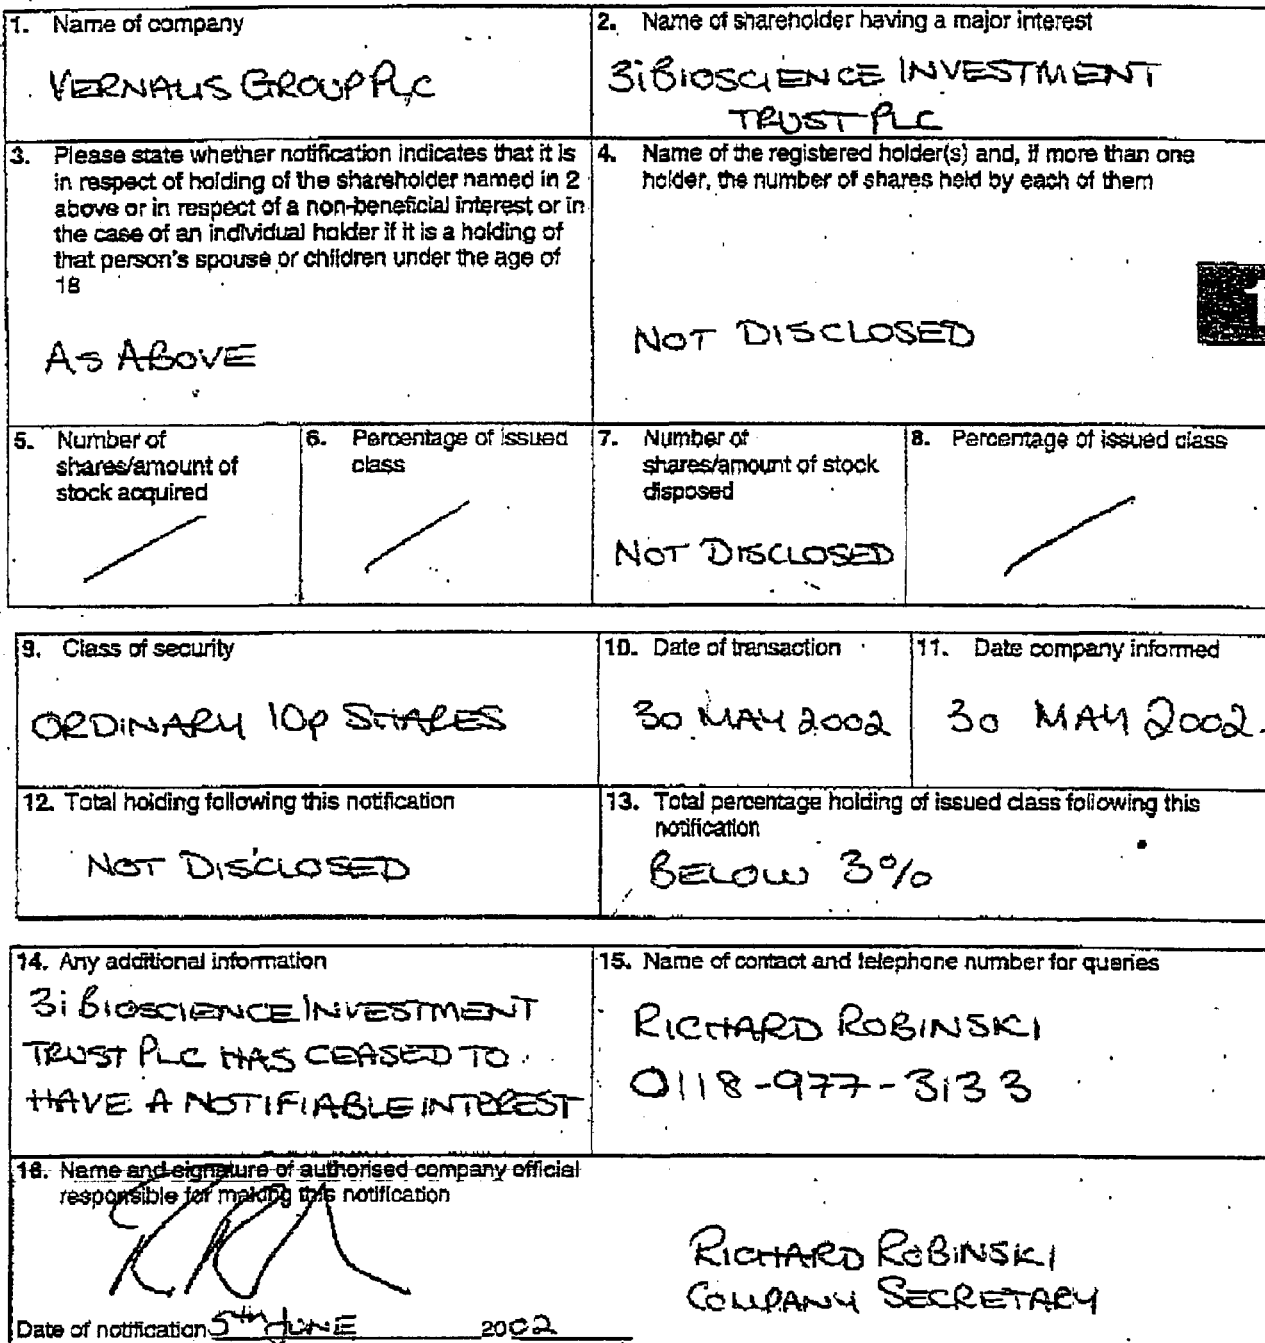 1. Name of company
VERNALIS GROUP PLC
2. Name of shareholder having a major interest
3i BIOSCIENCE INVESTMENT
TRUST PLC
3. Please state whether notification indicates that it is
in respect of holding of the shareholder named in 2
above or in respect of a non-beneficial interest or in
the case of an individual holder if it is a holding of
that person's spouse or children under the age of
18
AS ABOVE
4. Name of the registered holder(s) and, if more than one
holder, the number of shares held by each of them
NOT DISCLOSED
1
5. Number of
shares/amount of
stock acquired
6. Percentage of issued
class
7. Number of
shares/amount of stock
disposed
NOT DISCLOSED
8. Percentage of issued class
9. Class of security
ORDINARY 10p SHARES
10. Date of transaction
30 MAY 2002
11. Date company informed
30 MAY 2002.
12. Total holding following this notification
NOT DISCLOSED
13. Total percentage holding of issued class following this
notification
BELOW 3%
14. Any additional information
3i BIOSCIENCE INVESTMENT
TRUST PLC HAS CEASED TO
HAVE A NOTIFIABLE INTEREST
15. Name of contact and telephone number for queries
RICHARD ROBINSKI
0118-977-3133
16. Name and signature of authorised company official
responsible for making this notification
RICHARD ROBINSKI
COMPANY SECRETARY
Date of notification 5th JUNE 2002